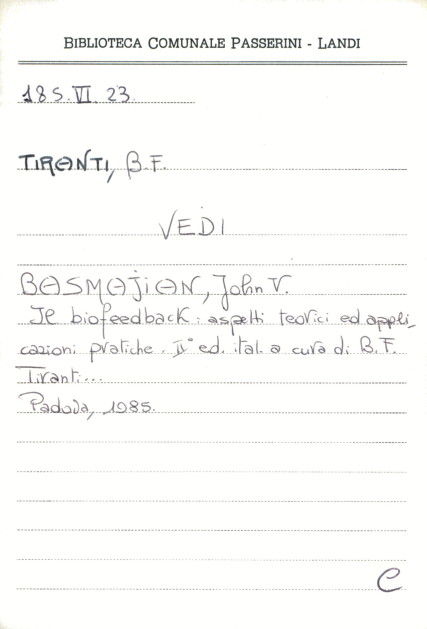 BIBLIOTECA COMUNALE PASSERINI - LANDI
185.VI.23.
TIRANTI, B.F.
VEDI
BASMAJIAN, John V.
Il biofeedback: aspetti teorici ed appli_
cazioni pratiche. IIª ed. ital. a cura di B.F.
Tiranti...
Padova, 1985.
C